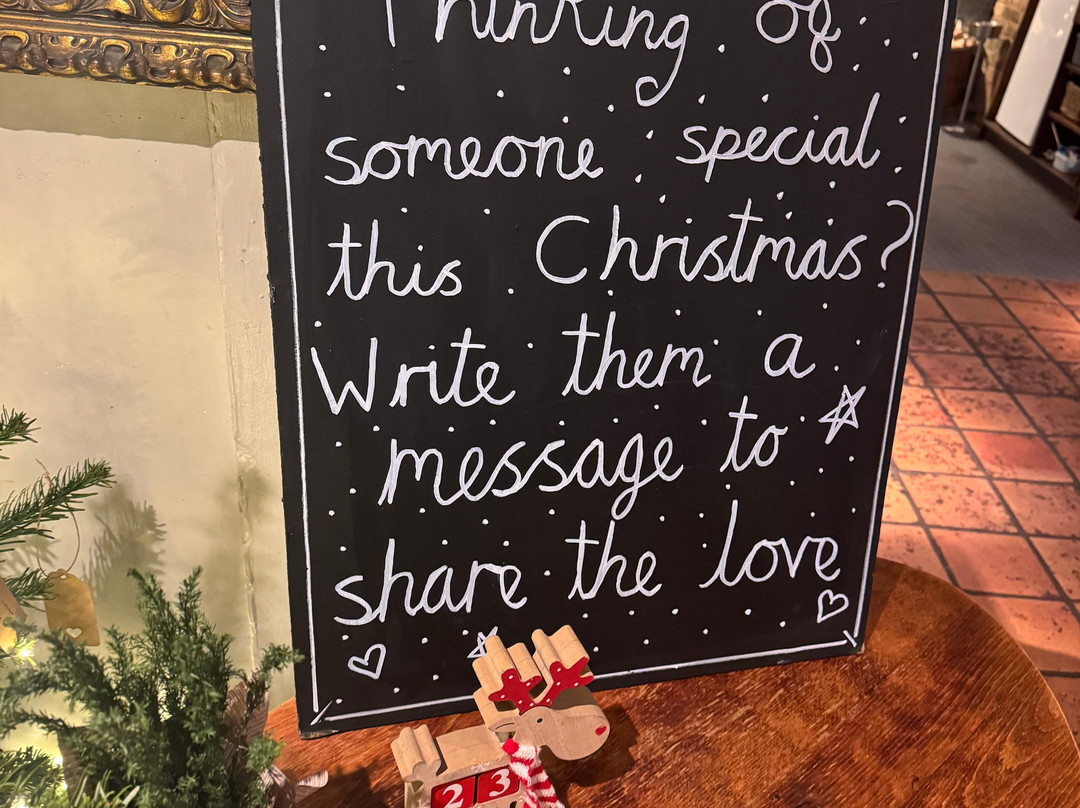 Thinking of
someone special
this Christmas?
Write them a
message to
share the love
23